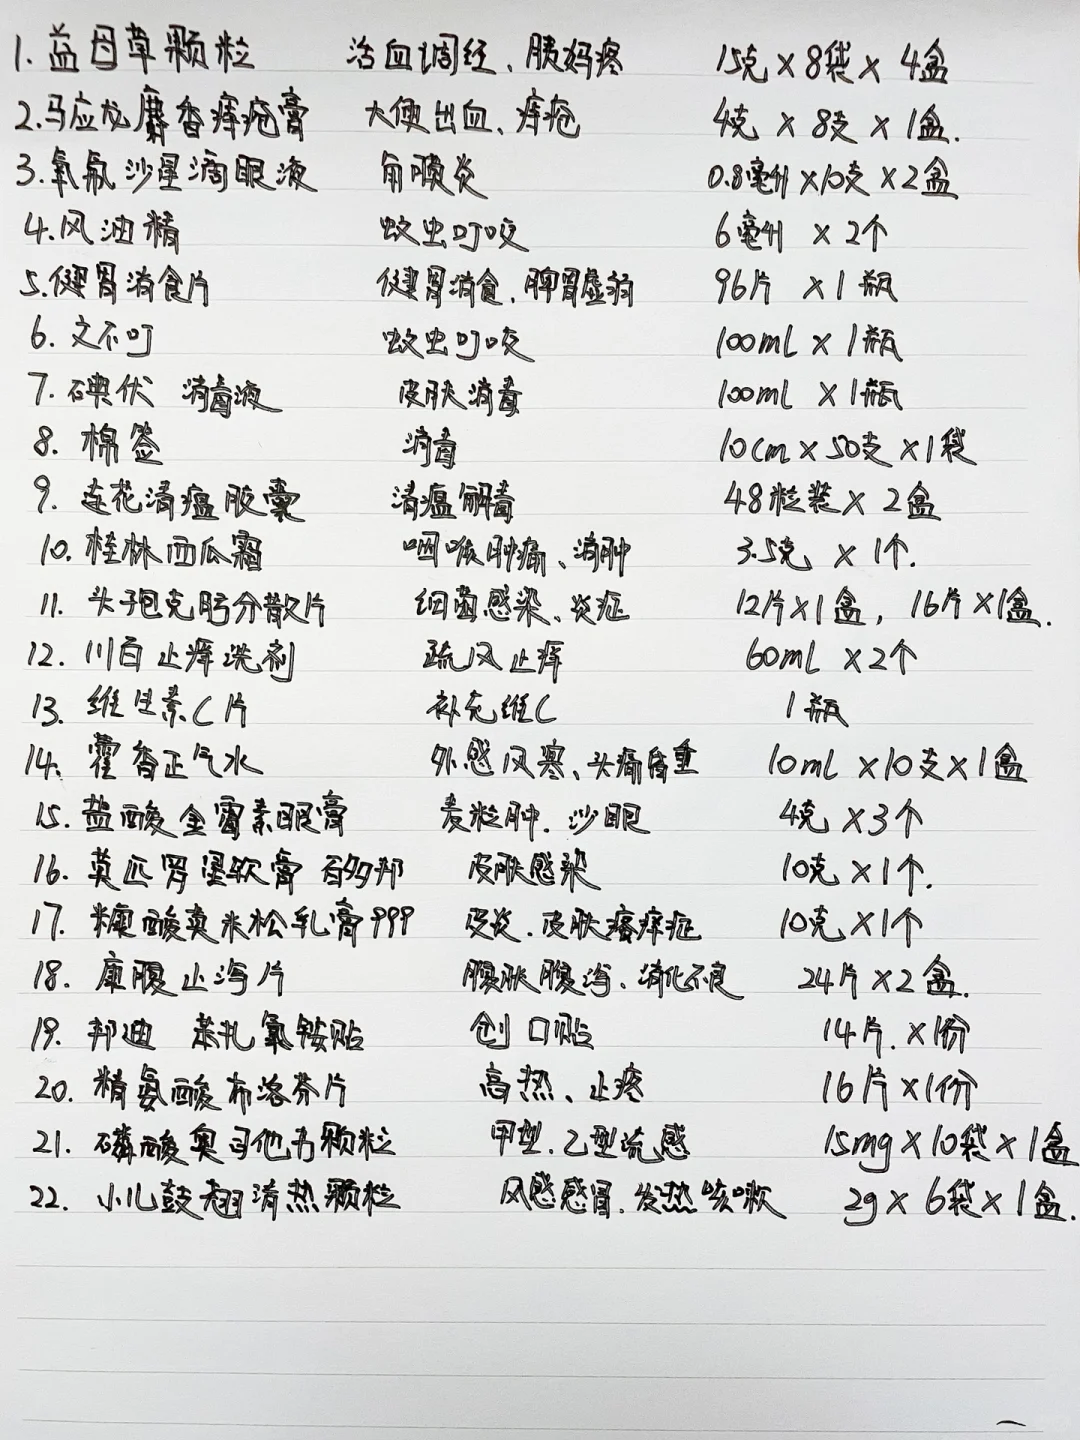 1. 益母草颗粒 活血调经、胰妈疼 15克×8袋×4盒
2. 马应龙麝香痔疮膏 大便出血、痔疮 4克×8支×1盒.
3. 氧氟沙星滴眼液 角膜炎 0.8毫升×10支×2盒
4. 风油精 蚊虫叮咬 6毫升×2个
5. 健胃消食片 健胃消食、脾胃虚弱 96片×1瓶
6. 文不叮 蚊虫叮咬 100ml×1瓶
7. 碘伏 消毒液 皮肤消毒 100ml×1瓶
8. 棉签 消毒 10cm×50支×1袋
9. 连花清瘟胶囊 清瘟解毒 48粒装×2盒
10. 桂林西瓜霜 咽喉肿痛、消肿 3.5克×1个.
11. 头孢克肟分散片 细菌感染、炎症 12片×1盒, 16片×1盒.
12. 川百止痒洗剂 疏风止痒 60ml×2个
13. 维生素C片 补充维C 1瓶
14. 霍香正气水 外感风寒、头痛昏重 10ml×10支×1盒
15. 盐酸金霉素眼膏 麦粒肿. 沙眼 4克×3个
16. 莫匹罗星软膏 百多邦 皮肤感染 10克×1个.
17. 糠酸莫米松乳膏999 皮炎. 皮肤瘙痒症 10克×1个
18. 康腹止泻片 腹胀腹泻、消化不良 24片×2盒.
19. 邦迪 苯扎氯铵贴 创口贴 14片.×1份
20. 精氨酸布洛芬片 高热、止疼 16片×1份
21. 磷酸奥司他韦颗粒 甲型.乙型流感 15mg×10袋×1盒
22. 小儿鼓翘清热颗粒 风感感冒.发热咳嗽 2g×6袋×1盒.